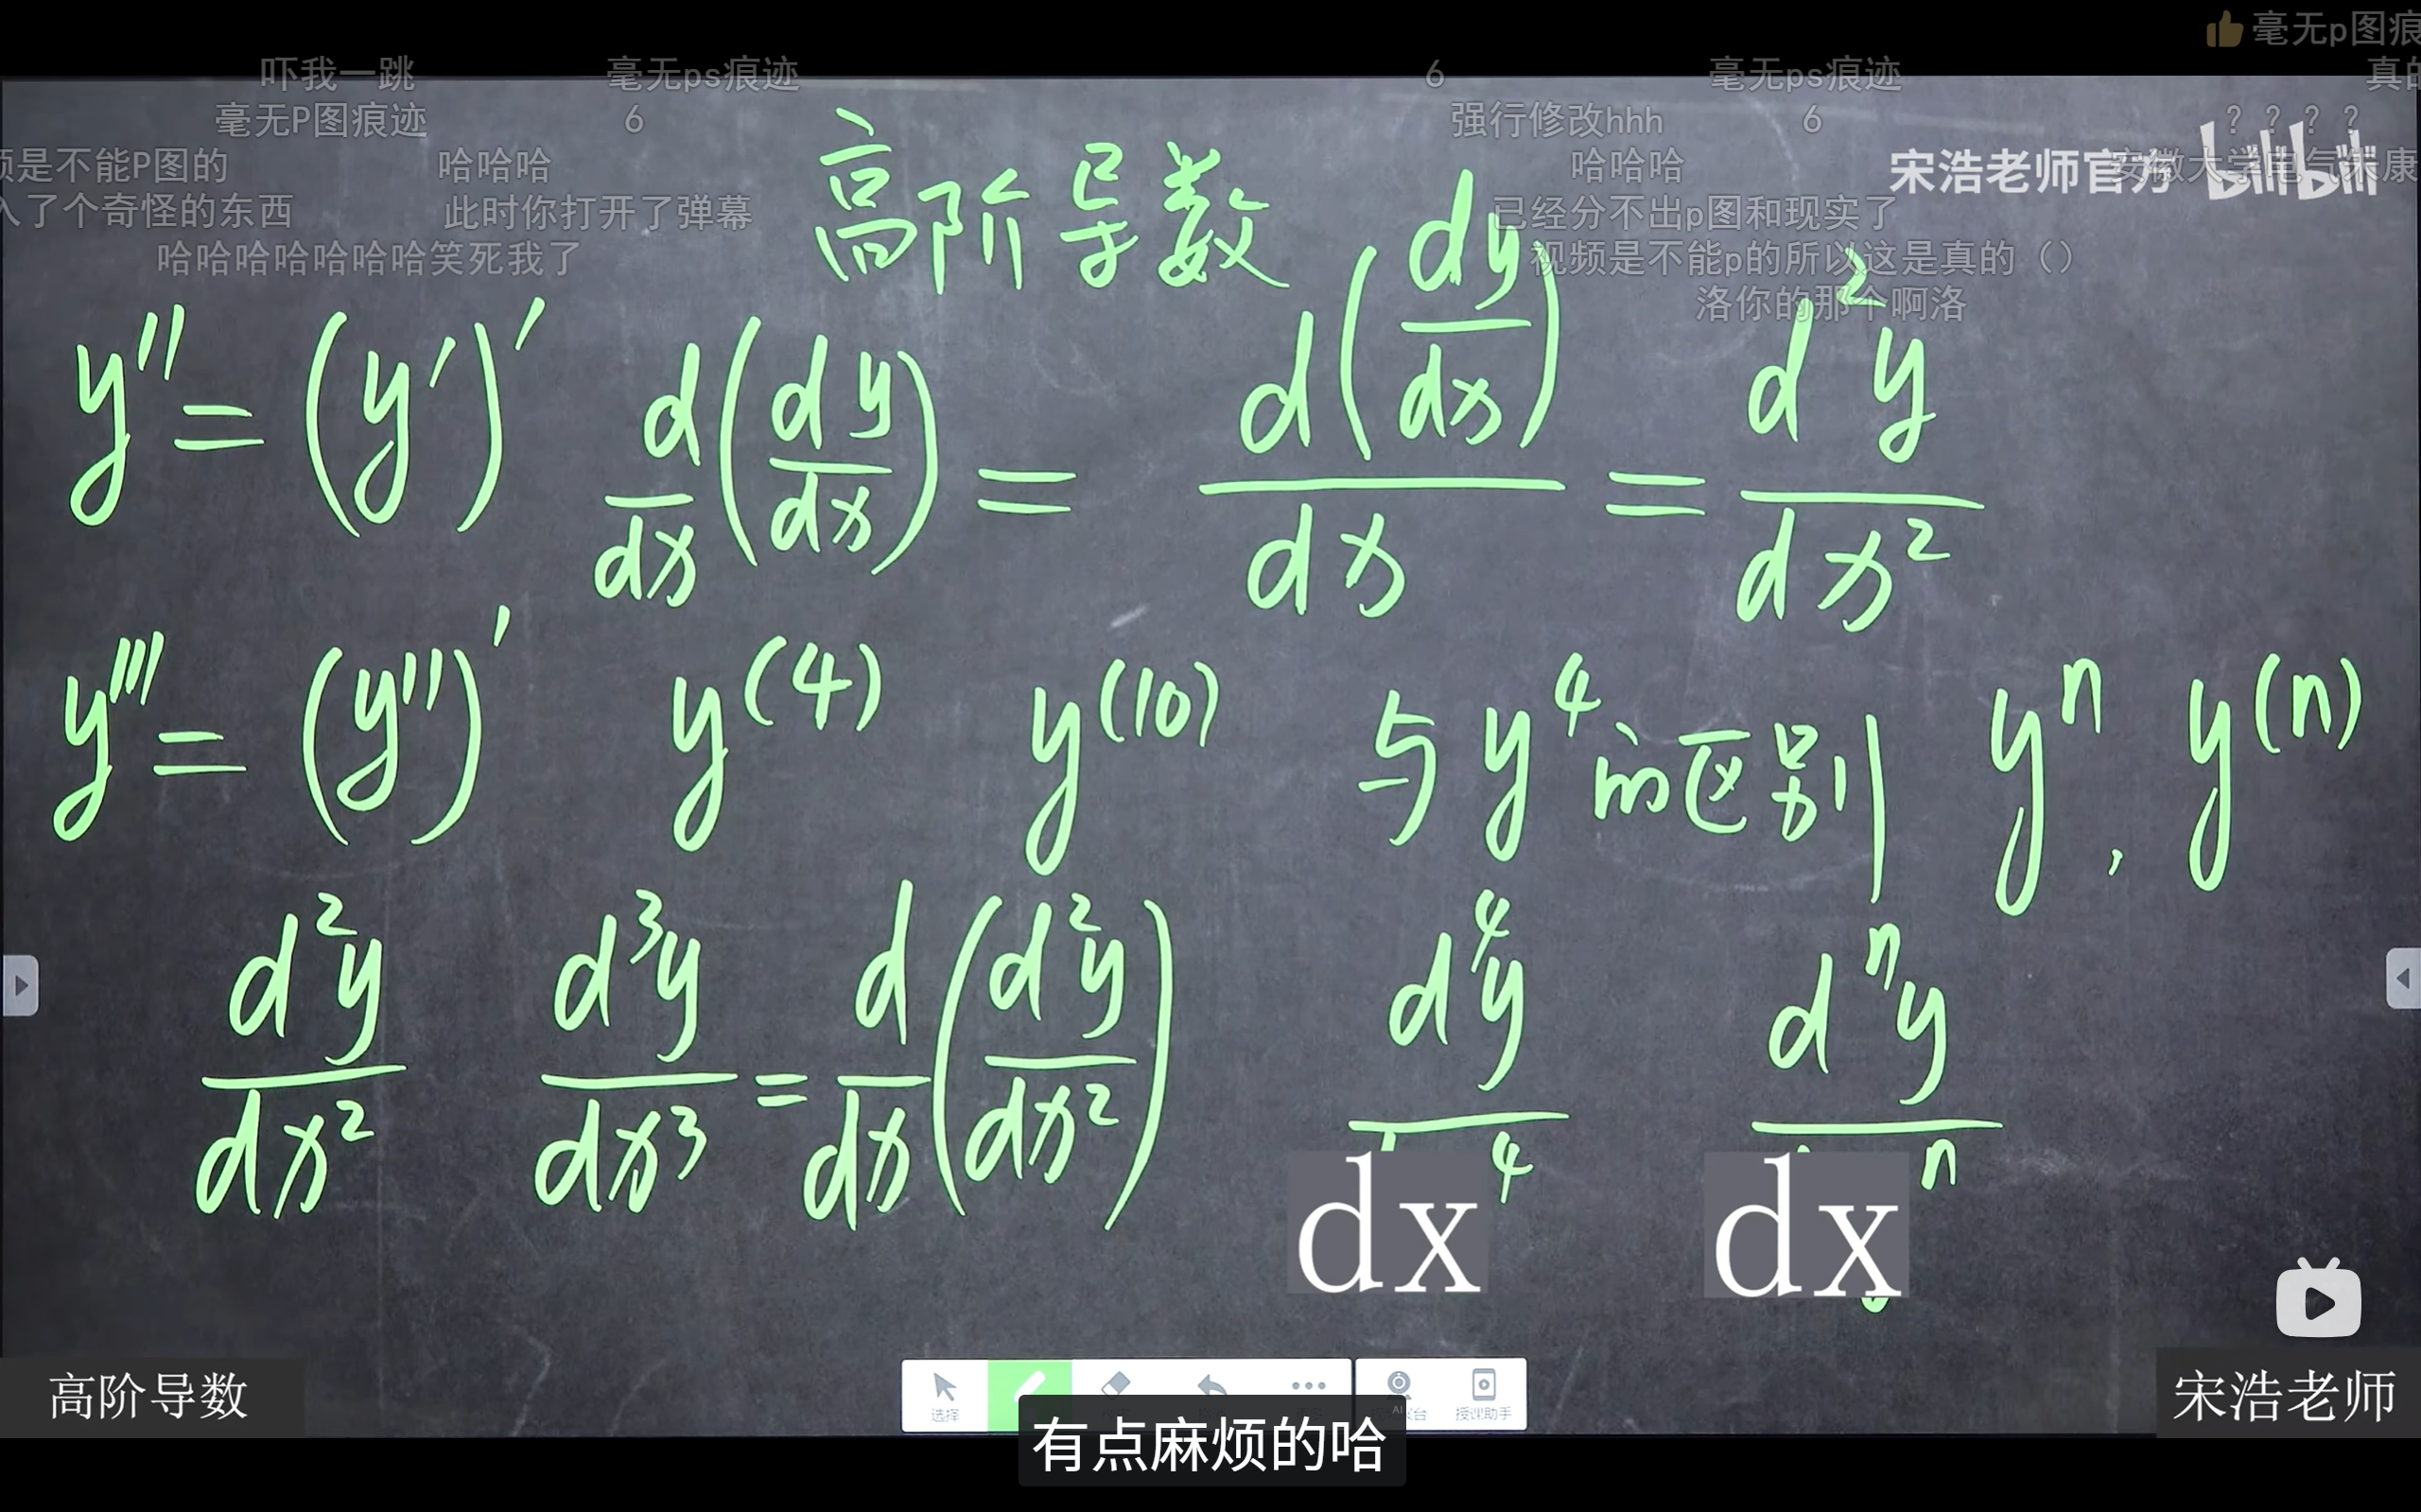 毫无p图痕
吓我一跳 毫无ps痕迹 6 毫无ps痕迹
毫无P图痕迹 6 强行修改hhh 6 ？？？？
是不能P图的 哈哈哈 哈哈哈
宋浩老师官方 bilibili
安徽大学电气
入了个奇怪的东西 此时你打开了弹幕 已经分不出p图和现实了
哈哈哈哈哈哈哈笑死我了 视频是不能p的所以这是真的（）
洛你的那个啊洛
高阶导数
y''=(y')' d/dx(dy/dx) = d(dy/dx)/dx = d²y/dx²
y'''=(y'')' y^(4) y^(10) 与y⁴的区别 yⁿ, y^(n)
d²y/dx² d³y/dx³ = d/dx(d²y/dx²) d⁴y/dx⁴ dⁿy/dxⁿ
高阶导数
选择
授课助手
有点麻烦的哈
宋浩老师